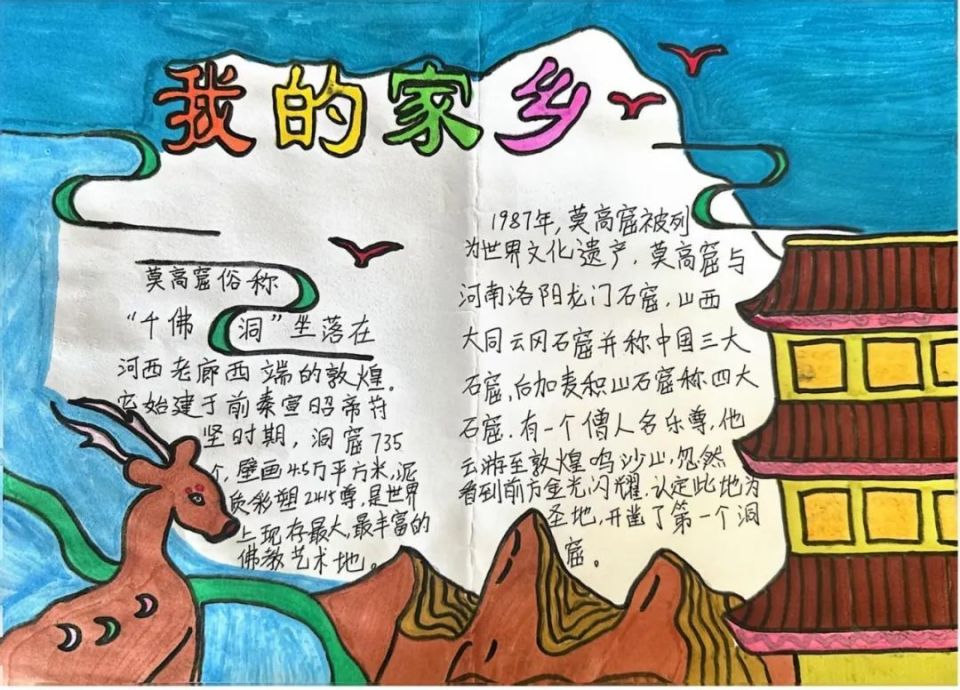 我的家乡
莫高窟俗称
“千佛洞”坐落在
河西老廊西端的敦煌。
它始建于前秦宣昭帝苻
坚时期，洞窟735
个，壁画4.5万平方米，泥
质彩塑2415尊，是世界
上现存最大，最丰富的
佛教艺术地。
1987年，莫高窟被列
为世界文化遗产，莫高窟与
河南洛阳龙门石窟，山西
大同云冈石窟并称中国三大
石窟，后加麦积山石窟称四大
石窟．有一个僧人名乐尊，他
云游至敦煌鸣沙山，忽然
看到前方金光闪耀，认定此地为
圣地，开凿了第一个洞
窟。